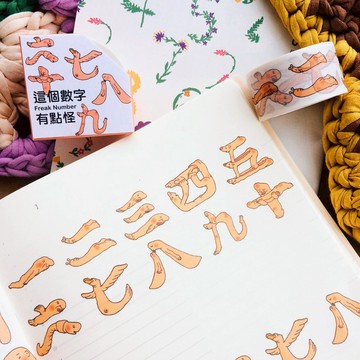 六七八
十九
這個數字
Freak Number
有點怪
一二三四五
六七八九十